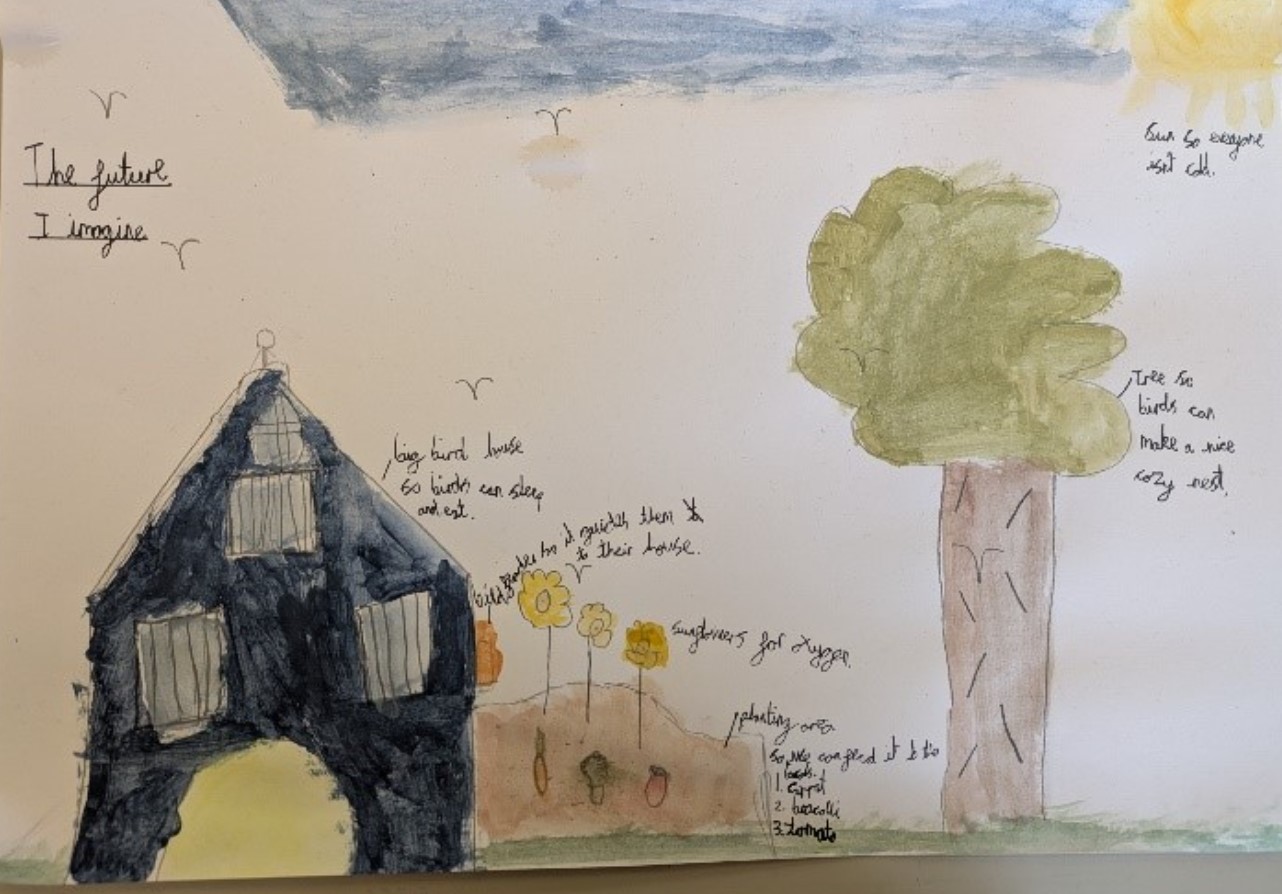 The future
I imagine
Sun so everyone
isn't cold.
Tree so
birds can
make a nice
cozy nest.
big bird house
so birds can sleep
and eat.
so it guides them
to their house.
sunflowers for oxygen.
planting area
So we can feed it to the
birds.
1. carrot
2. broccoli
3. tomato